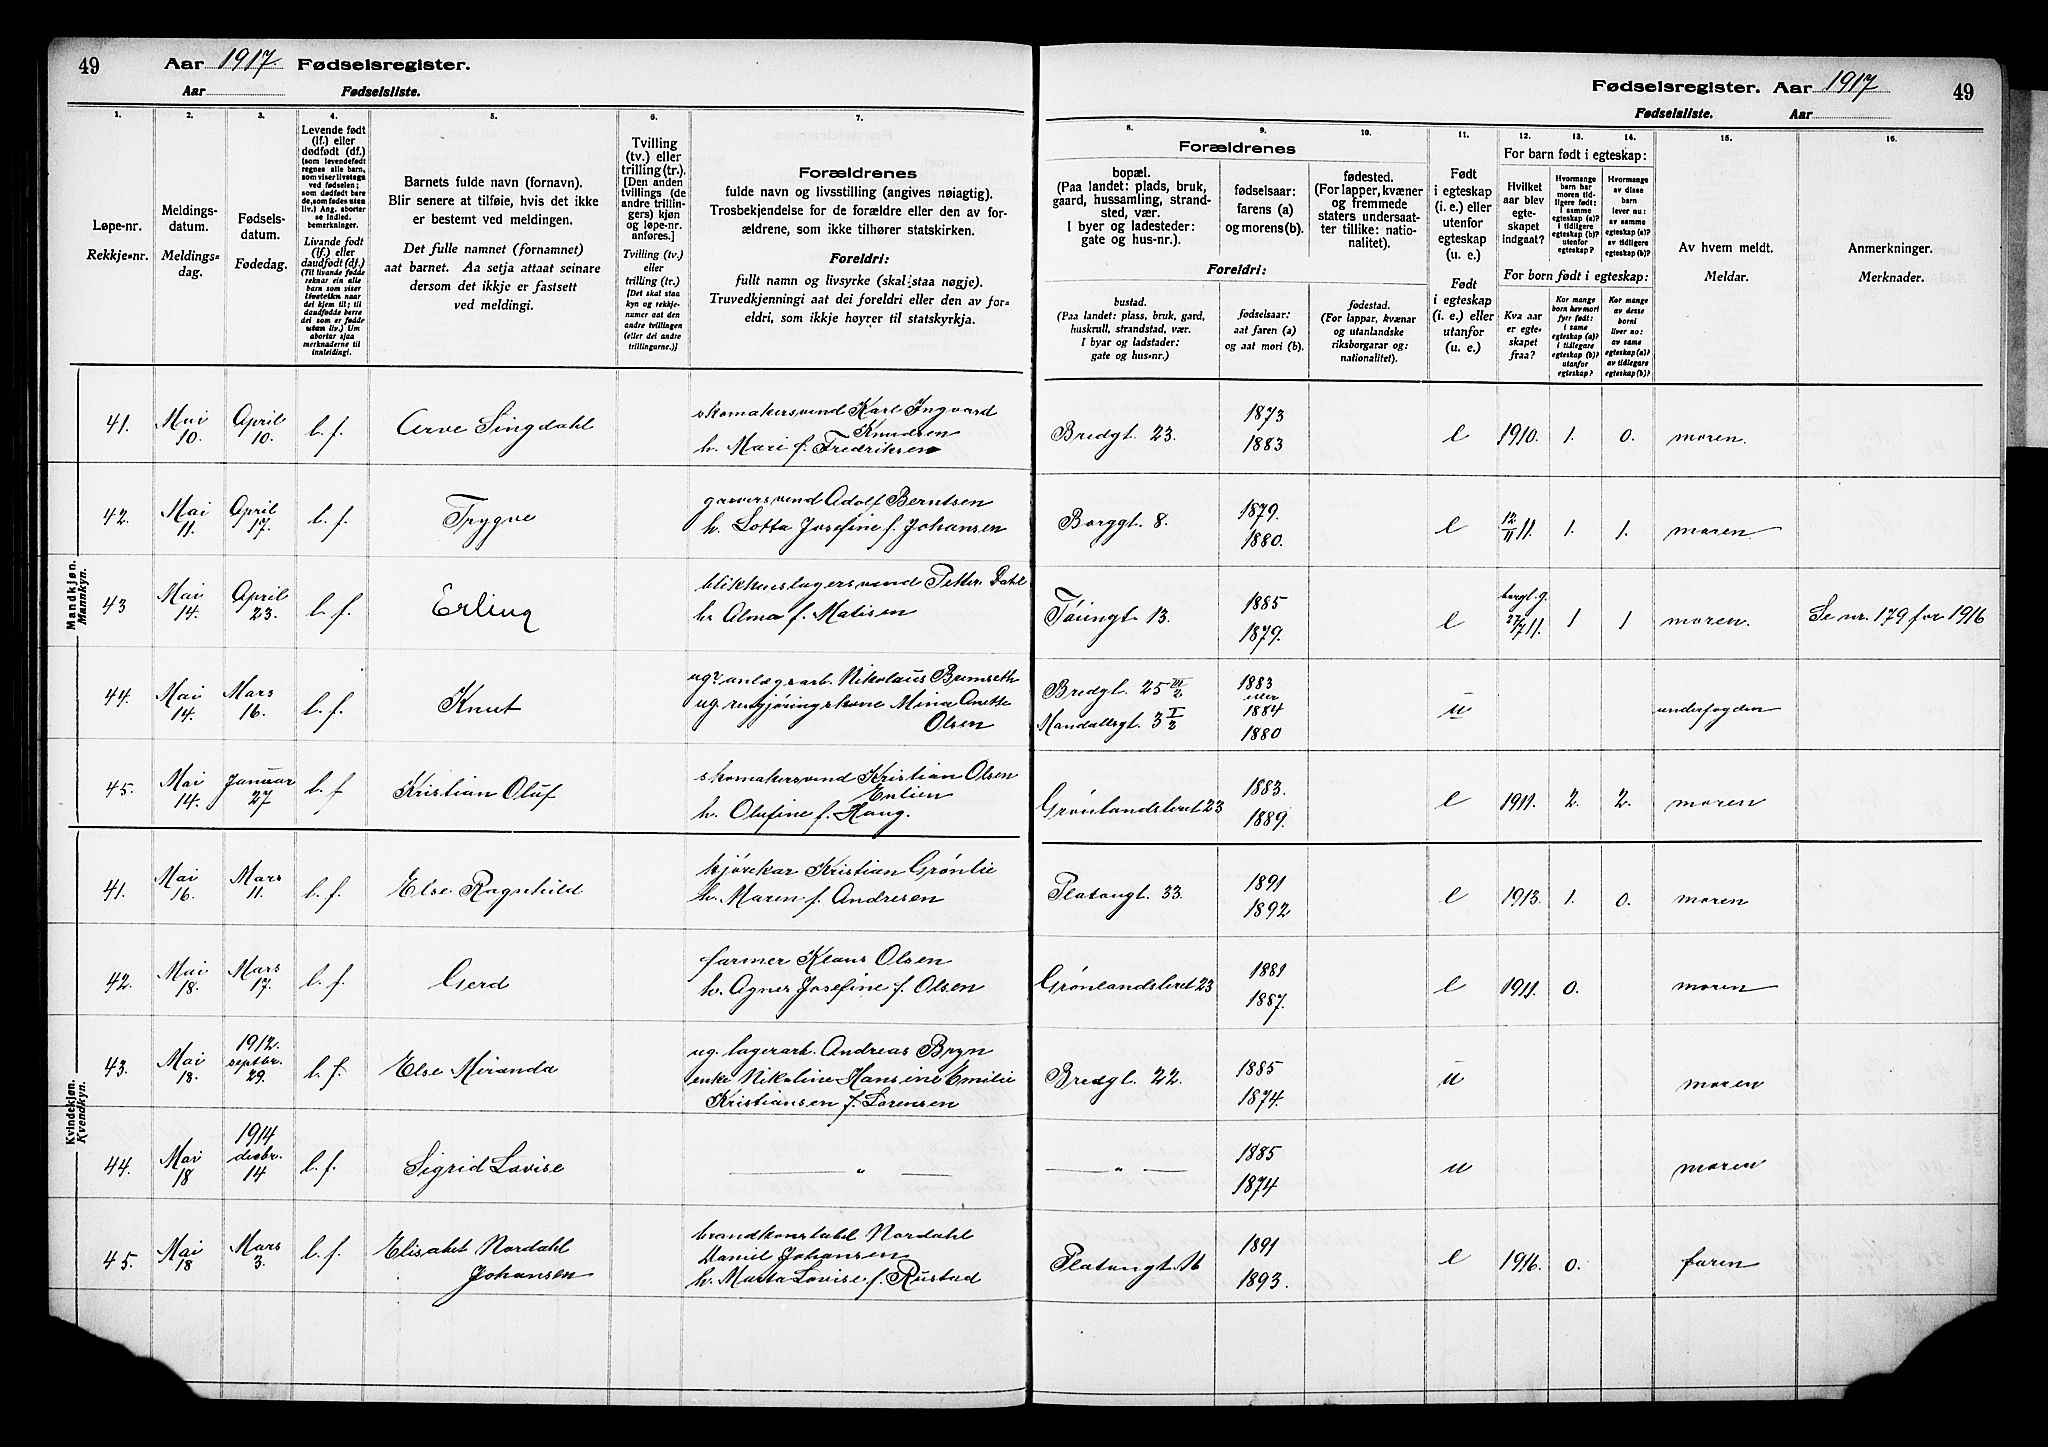 49
Aar 1917. Fødselsregister.
Aar Fødselsliste.
Fødselsregister. Aar 1917
49
Fødselsliste. Aar
1. 2. 3. 4. 5. 6. 7.
Løpe-nr.
Rekkje-nr.
Meldings-
datum.
Meldings-
dag.
Fødsels-
datum.
Fødedag.
Levende født
(lf.) eller
dødfødt (df.)
(som levendefødt
regnes alle barn,
som viser livstegn
ved fødselen;
som dødfødt bare
de, som fødes uten
liv.) Ang. aborter
se indled.
bemerkninger.
Livande født
(lf.) eller
daudfødt (df.)
(Til livande fødde
reknar ein alle
born som viser
livsteikn naar
dei kjem til; til
daudfødde berre
dei som er fødde
utan liv.) Um
abortar sjaa
merknaderne til
innleidingi.
Barnets fulde navn (fornavn).
Blir senere at tilføie, hvis det ikke
er bestemt ved meldingen.
Det fulle namnet (fornamnet)
aat barnet. Aa setja attaat seinare
dersom det ikkje er fastsett
ved meldingi.
Tvilling
(tv.) eller
trilling (tr.).
[Den anden
tvillings (de
andre trillin-
gers) kjøn
og løpe-nr.
anføres.]
Tvilling (tv.)
eller
trilling (tr.)
[Det skal staa
kyn og rekkje-
numer aat den
andre tvillingen
(eller dei andre
trillingarne.)]
Forældrenes
fulde navn og livsstilling (angives nøiagtig).
Trosbekjendelse for de forældre eller den av for-
ældrene, som ikke tilhører statskirken.
Foreldri:
fullt namn og livsyrke (skal staa nøgje).
Truvedkjenningi aat dei foreldri eller den av for-
eldri, som ikkje høyrer til statskyrkja.
8. 9. 10. 11. 12. 13. 14. 15. 16.
Forældrenes
bopæl.
(Paa landet: plads, bruk,
gaard, hussamling, strand-
sted, vær.
I byer og ladesteder:
gate og hus-nr.).
fødselsaar:
farens (a)
og morens (b).
fødested.
(For lapper, kvæner
og fremmede
staters undersaat-
ter tillike: natio-
nalitet).
Foreldri:
bustad.
(Paa landet: plass, bruk, gard,
huskrull, strandstad, vær.
I byar og ladstader:
gate og hus-nr.)
fødselsaar:
aat faren (a)
og aat mori (b).
fødestad.
(For lappar, kvænar
og utanlandske
riksborgarar og:
nationalitet).
Født
i egteskap
(i. e.) eller
utenfor
egteskap
(u. e.)
Født
i egteskap
(i. e.) eller
utanfor
(u. e.)
For barn født i egteskap:
Hvilket
aar blev
egte-
skapet
indgaat?
Hvormange
barn har
moren tid-
ligere født:
i samme
egteskap (a)?
i tidligere
egteskap (b)?
utenfor
egteskap?
Hvormange
av disse
barn
lever nu:
av samme
egteskap (a)?
av tidligere
egteskap (b)?
For born født i egteskap:
Kva aar
er egte-
skapet
fraa?
Kor mange
born hev mori
fyrr født:
i same
egteskap (a)?
i tidlegare
egteskap (b)?
utanfor
egteskap?
Kor mange
av desse
borni
liver no:
av same
egteskap (a)?
av tidlegare
egteskap (b)?
Av hvem meldt.
Meldar.
Anmerkninger.
Merknader.
Mandkjøn.
Mannkyn.
41. Mai 10. April 10. l. f. Arve Singdahl
skomakersvend Karl Ingvard
Knudsen
h. Mari f. Fredriksen
Bredgt. 23. 1873 1883 e 1910. 1. 0. moren.
42. Mai 11. April 17. l. f. Trygve
garversvend Adolf Berntsen
h. Lotta Josefine f. Johansen
Borggt. 8. 1879. 1880. e 12/11 11. 1. 1. moren.
43 Mai 14. April 23. l. f. Erling
blikkenslagersvend Petter Dahl
h. Alma f. Matisen
Tøiengt. 13. 1885 1879. e borgl. g. 27/7 11. 1 1 moren. Se nr. 179 for 1916
44. Mai 14. Mars 16. l. f. Knut
ug. anlægsarb. Nikolaus Bremseth
ug. rengjøringskone Mina Anette
Olsen
Bredgt. 25 III/2 1883 eller 1884
Mandallsgt. 3 I/3 1880 u underfogden
45. Mai 14. Januar 27 l. f Kristian Oluf
skomakersvend Kristian Olsen
Enlien
h. Olufine f. Haug.
Grønlandsleret 23 1883. 1889. e 1911. 2. 2. moren
Kvindekjøn.
Kvendkyn.
41. Mai 16. Mars 11. l. f. Else Ragnhild
kjørekar Kristian Grønlie
h. Maren f. Andresen
Platangt. 33. 1891 1892 e 1913. 1. 0. moren
42. Mai 18. Mars 17. l. f. Gerd
farmer Klaus Olsen
h. Agnes Josefine f. Olsen
Grønlandsleret 23 1881 1887. e 1911. 0. moren
43. Mai 18. 1912. septbr. 29. l. f. Else Miranda
ug. lagerarb. Andreas Bryn
enke Nikoline Hansine Emilie
Kristiansen f. Lorensen
Bredgt. 22. 1885 1874. u moren
44. Mai 18 1914 desbr. 14 l. f. Sigrid Lovise
— " —
— " — 1885 1874 u moren
45. Mai 18 Mars 3. l. f. Elisabet Nordahl
Johansen
brandkonstabel Nordahl
Daniel Johansen
h. Marta Lovise f. Rustad
Platangt. 16 1891 1893. e 1916. 0. faren